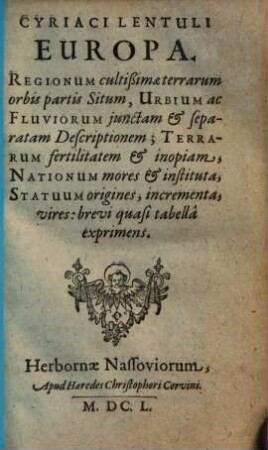 CYRIACI LENTULI
EUROPA.
REGIONUM cultißimæ terrarum
orbis partis Situm, URBIUM ac
FLUVIORUM junctam & sepa-
ratam Descriptionem; TERRA-
RUM fertilitatem & inopiam,
NATIONUM mores & instituta,
STATUUM origines, incrementa,
vires: brevi quasi tabellâ
exprimens.
Herbornæ Nassoviorum,
Apud Hæredes Christophori Corvini.
M. DC. L.